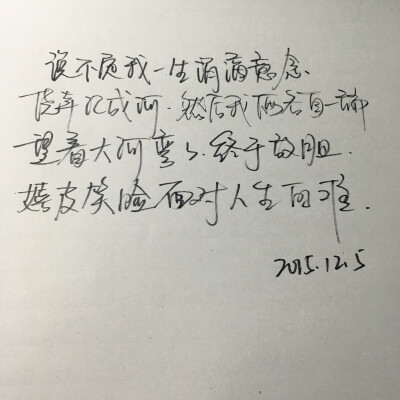 说不定我一生涓滴意念、
侥幸汇成河.然后我俩各自一端
望着大河弯々,终于敢胆.
嬉皮笑脸面对人生的难.
2015.12.5